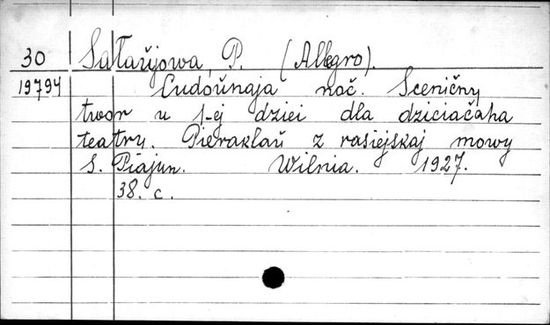 30 Sałaŭjowa, P. (Allegro).
19794 Cudoŭnaja noč. Sceničny
twor u 1-ej dziei dla dziciačaha
teatry. Pierakłaŭ z rasiejskaj mowy
S. Piajun. Wilnia. 1927.
38. c.